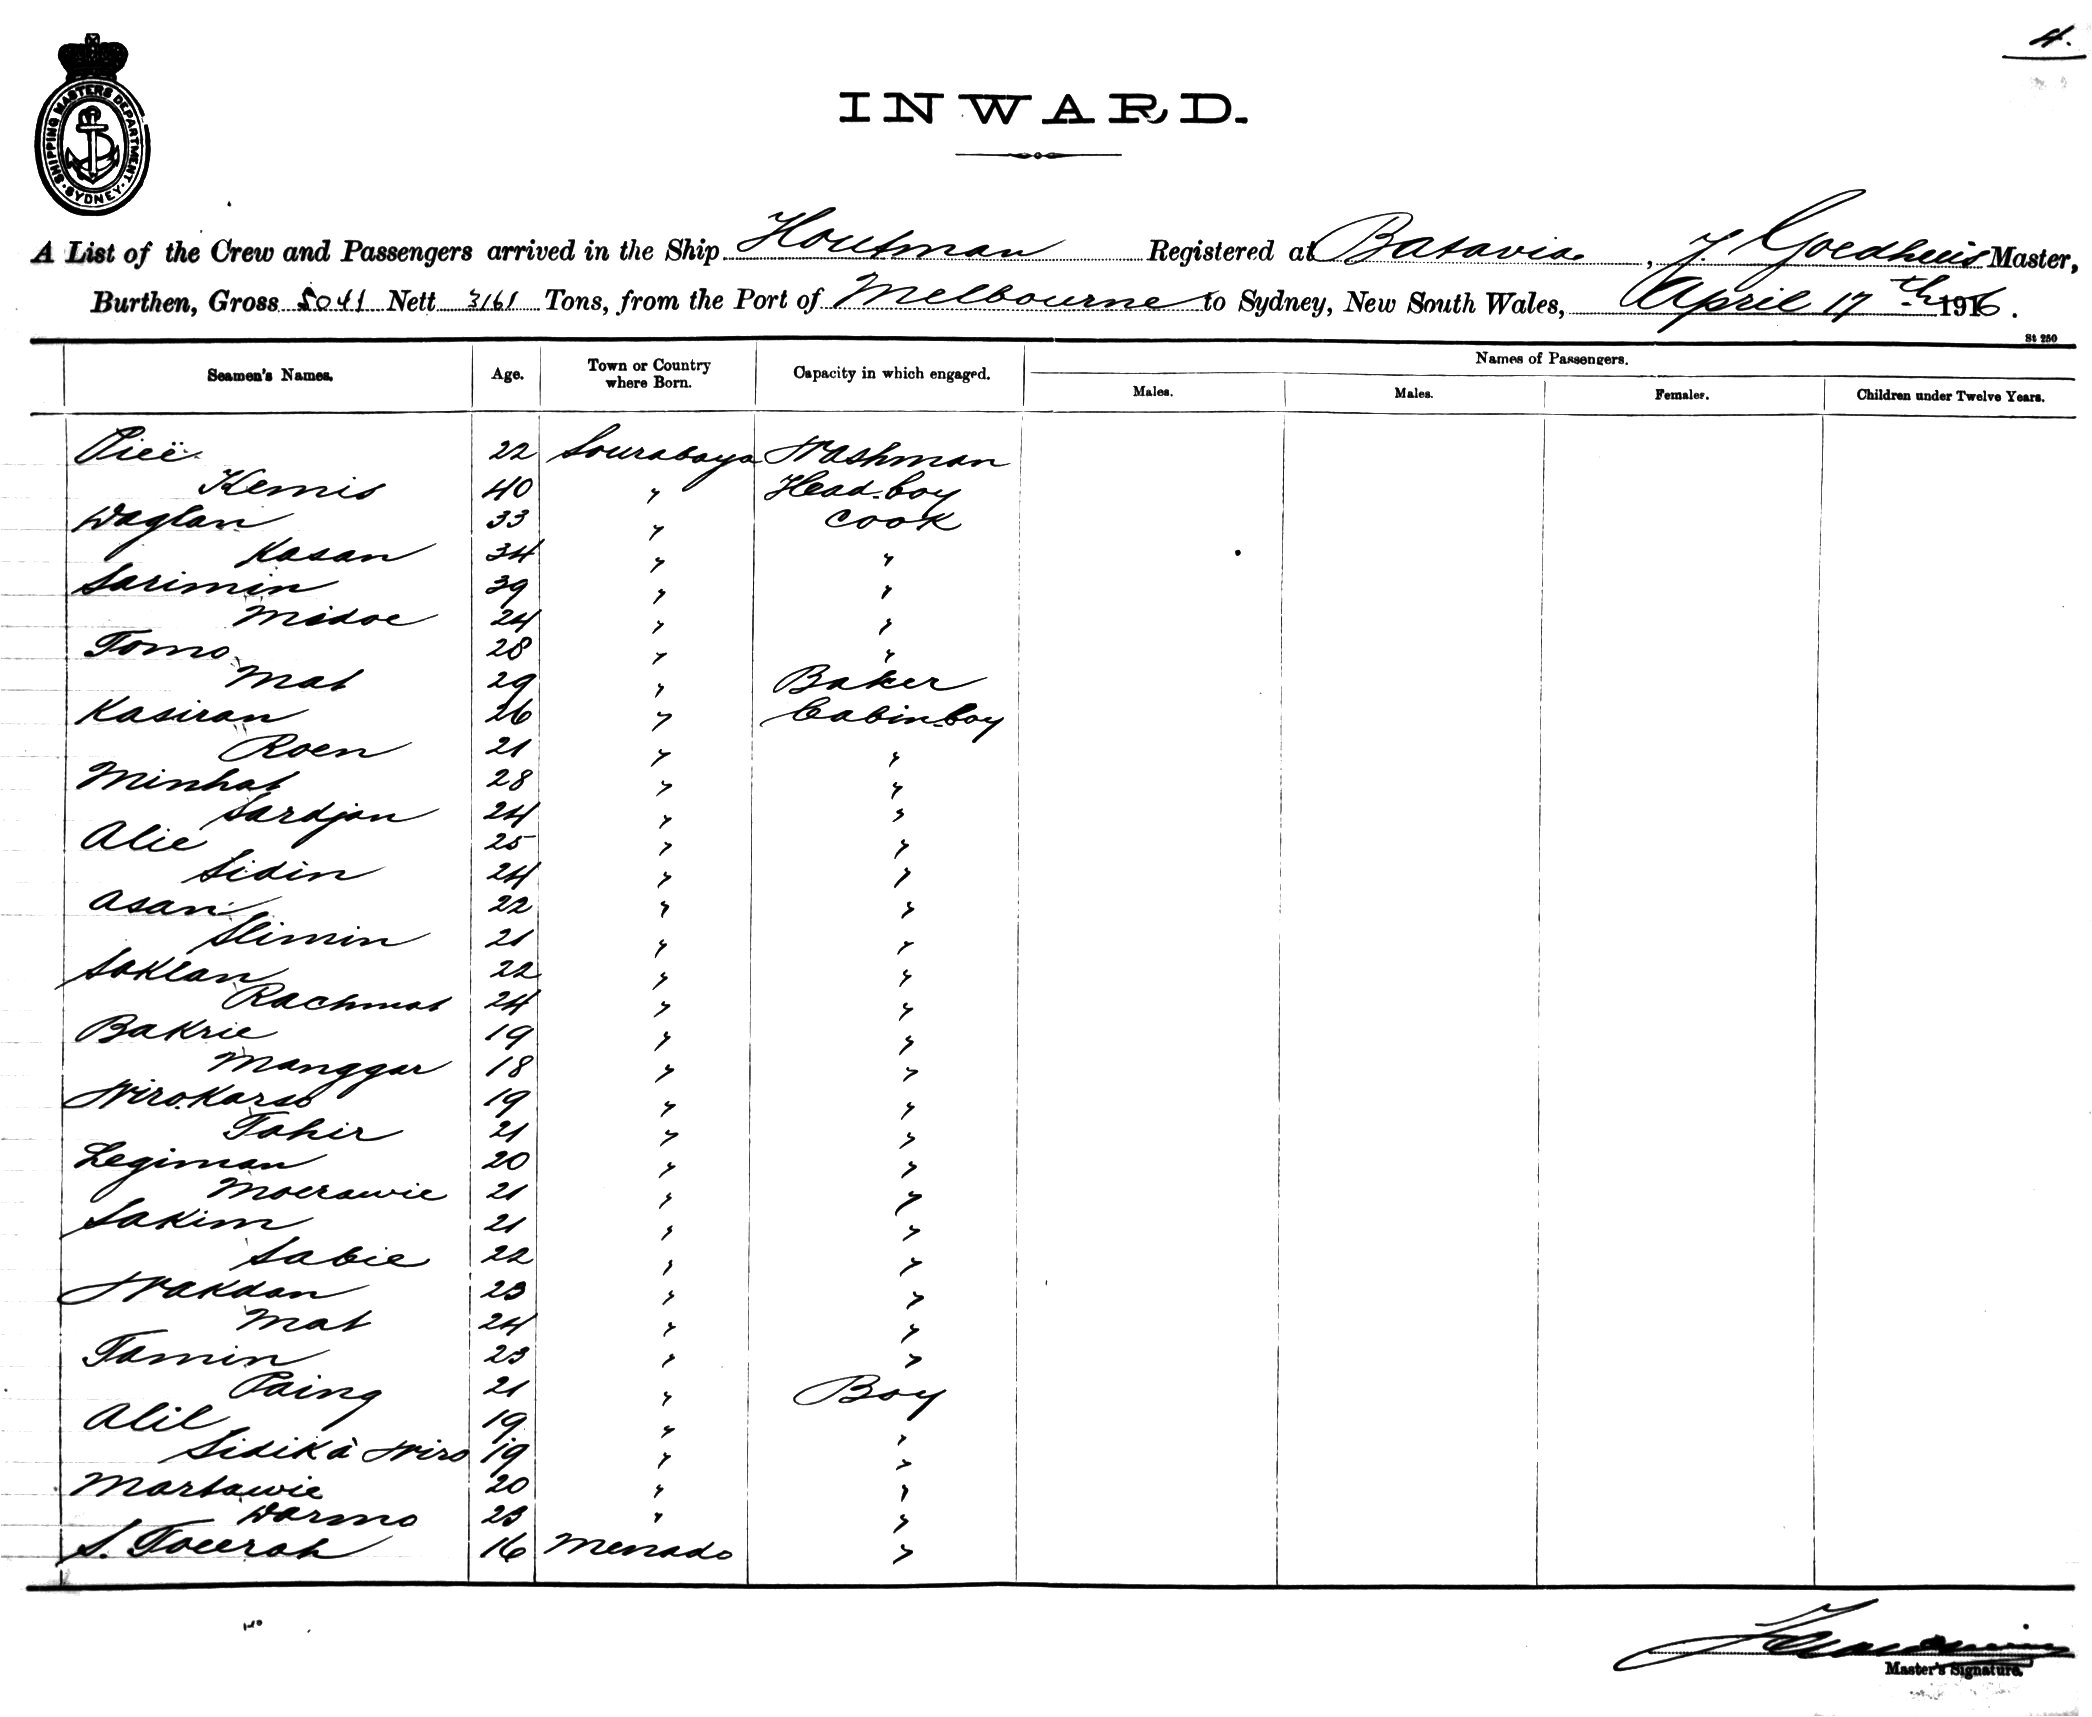 4.
SHIPPING MASTERS DEPARTMENT
SYDNEY
INWARD.
A List of the Crew and Passengers arrived in the Ship Houtman Registered at Batavia, J. Goedhuis Master,
Burthen, Gross 5041 Nett 3161 Tons, from the Port of Melbourne to Sydney, New South Wales, April 17th 1916.
St 250
Seamen's Names. Age. Town or Country where Born. Capacity in which engaged. Names of Passengers.
Males. Males. Females. Children under Twelve Years.
22 Sourabaya Washman
Kemis 40 " Head-boy
Waglan 33 " Cook
Kasan 34 " "
Sarimin 39 " "
Midoe 24 " "
Tomo 28 " "
Mat 29 " Baker
Kasiran 26 " Cabin-boy
Roen 21 " "
Minhat 28 " "
Sardjan 24 " "
Alie 25 " "
Sidin 24 " "
Asan 22 " "
Slimin 21 " "
Saklan 22 " "
Rachmat 24 " "
Bakrie 19 " "
Manggar 18 " "
Wirokarso 19 " "
Tahir 21 " "
Legiman 20 " "
Moerawie 21 " "
Sakim 21 " "
Sabie 22 " "
Wakdan 23 " "
Mat 24 " "
Tamin 23 " "
Paing 21 " Boy
Alil 19 " "
Sidik à Wiro 19 " "
Martawie 20 " "
Darmo 23 " "
S. Toeerah 16 Menado "
Master's Signature.